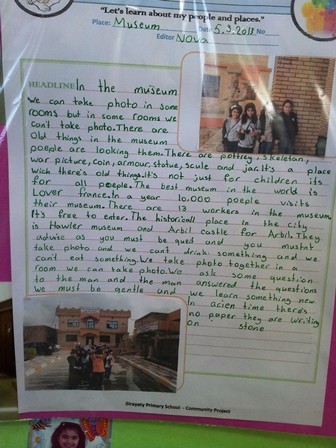 "Let's learn about my people and places."
Place: Museum Date 5.3.2018 No
Editor Nova
HEADLINE In the museum
we can take photo in some
rooms but in some rooms we
can't take photo. There are
old things in the museum
poeple are looking them. There are pottrey, skeletan,
war picture, coin, armour, statue, scule and jar. It's a place
wich there's old things. It's not just for children its
for all people. The best museum in the world is
Lover france. In a year 10.000 poeple visits
their museum. There are 13 workers in the museum
It's free to enter. The historicall place in the city
is Hawler museum and Arbil castle for Arbil. They
advise as you must be quet and you mushnt
take photo and we can't drink something and we
can't eat something. We take photo together in a
room we can take photo. We ask some question
to the man and the man answered the questions
we must be gentle and we learn something new
In acien time there's
no paper they are writing
on stone
Sirayaty Primary School - Community Project